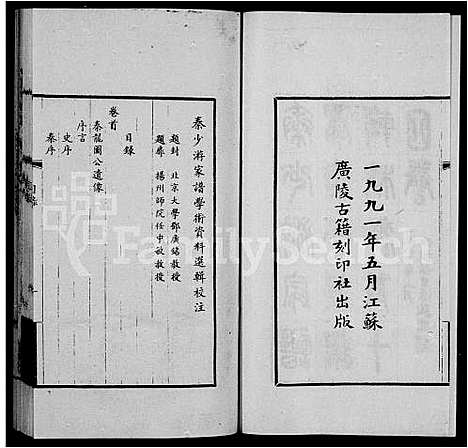 一九九一年五月江蘇
廣陵古籍刻印社出版
秦少游家譜學術資料選輯校注
題封 北京大學鄧廣銘教授
題扉 揚州師院任中敏教授
目錄
卷首
秦龍圖公遺像
序言
史序
秦序
目錄
FamilySearch